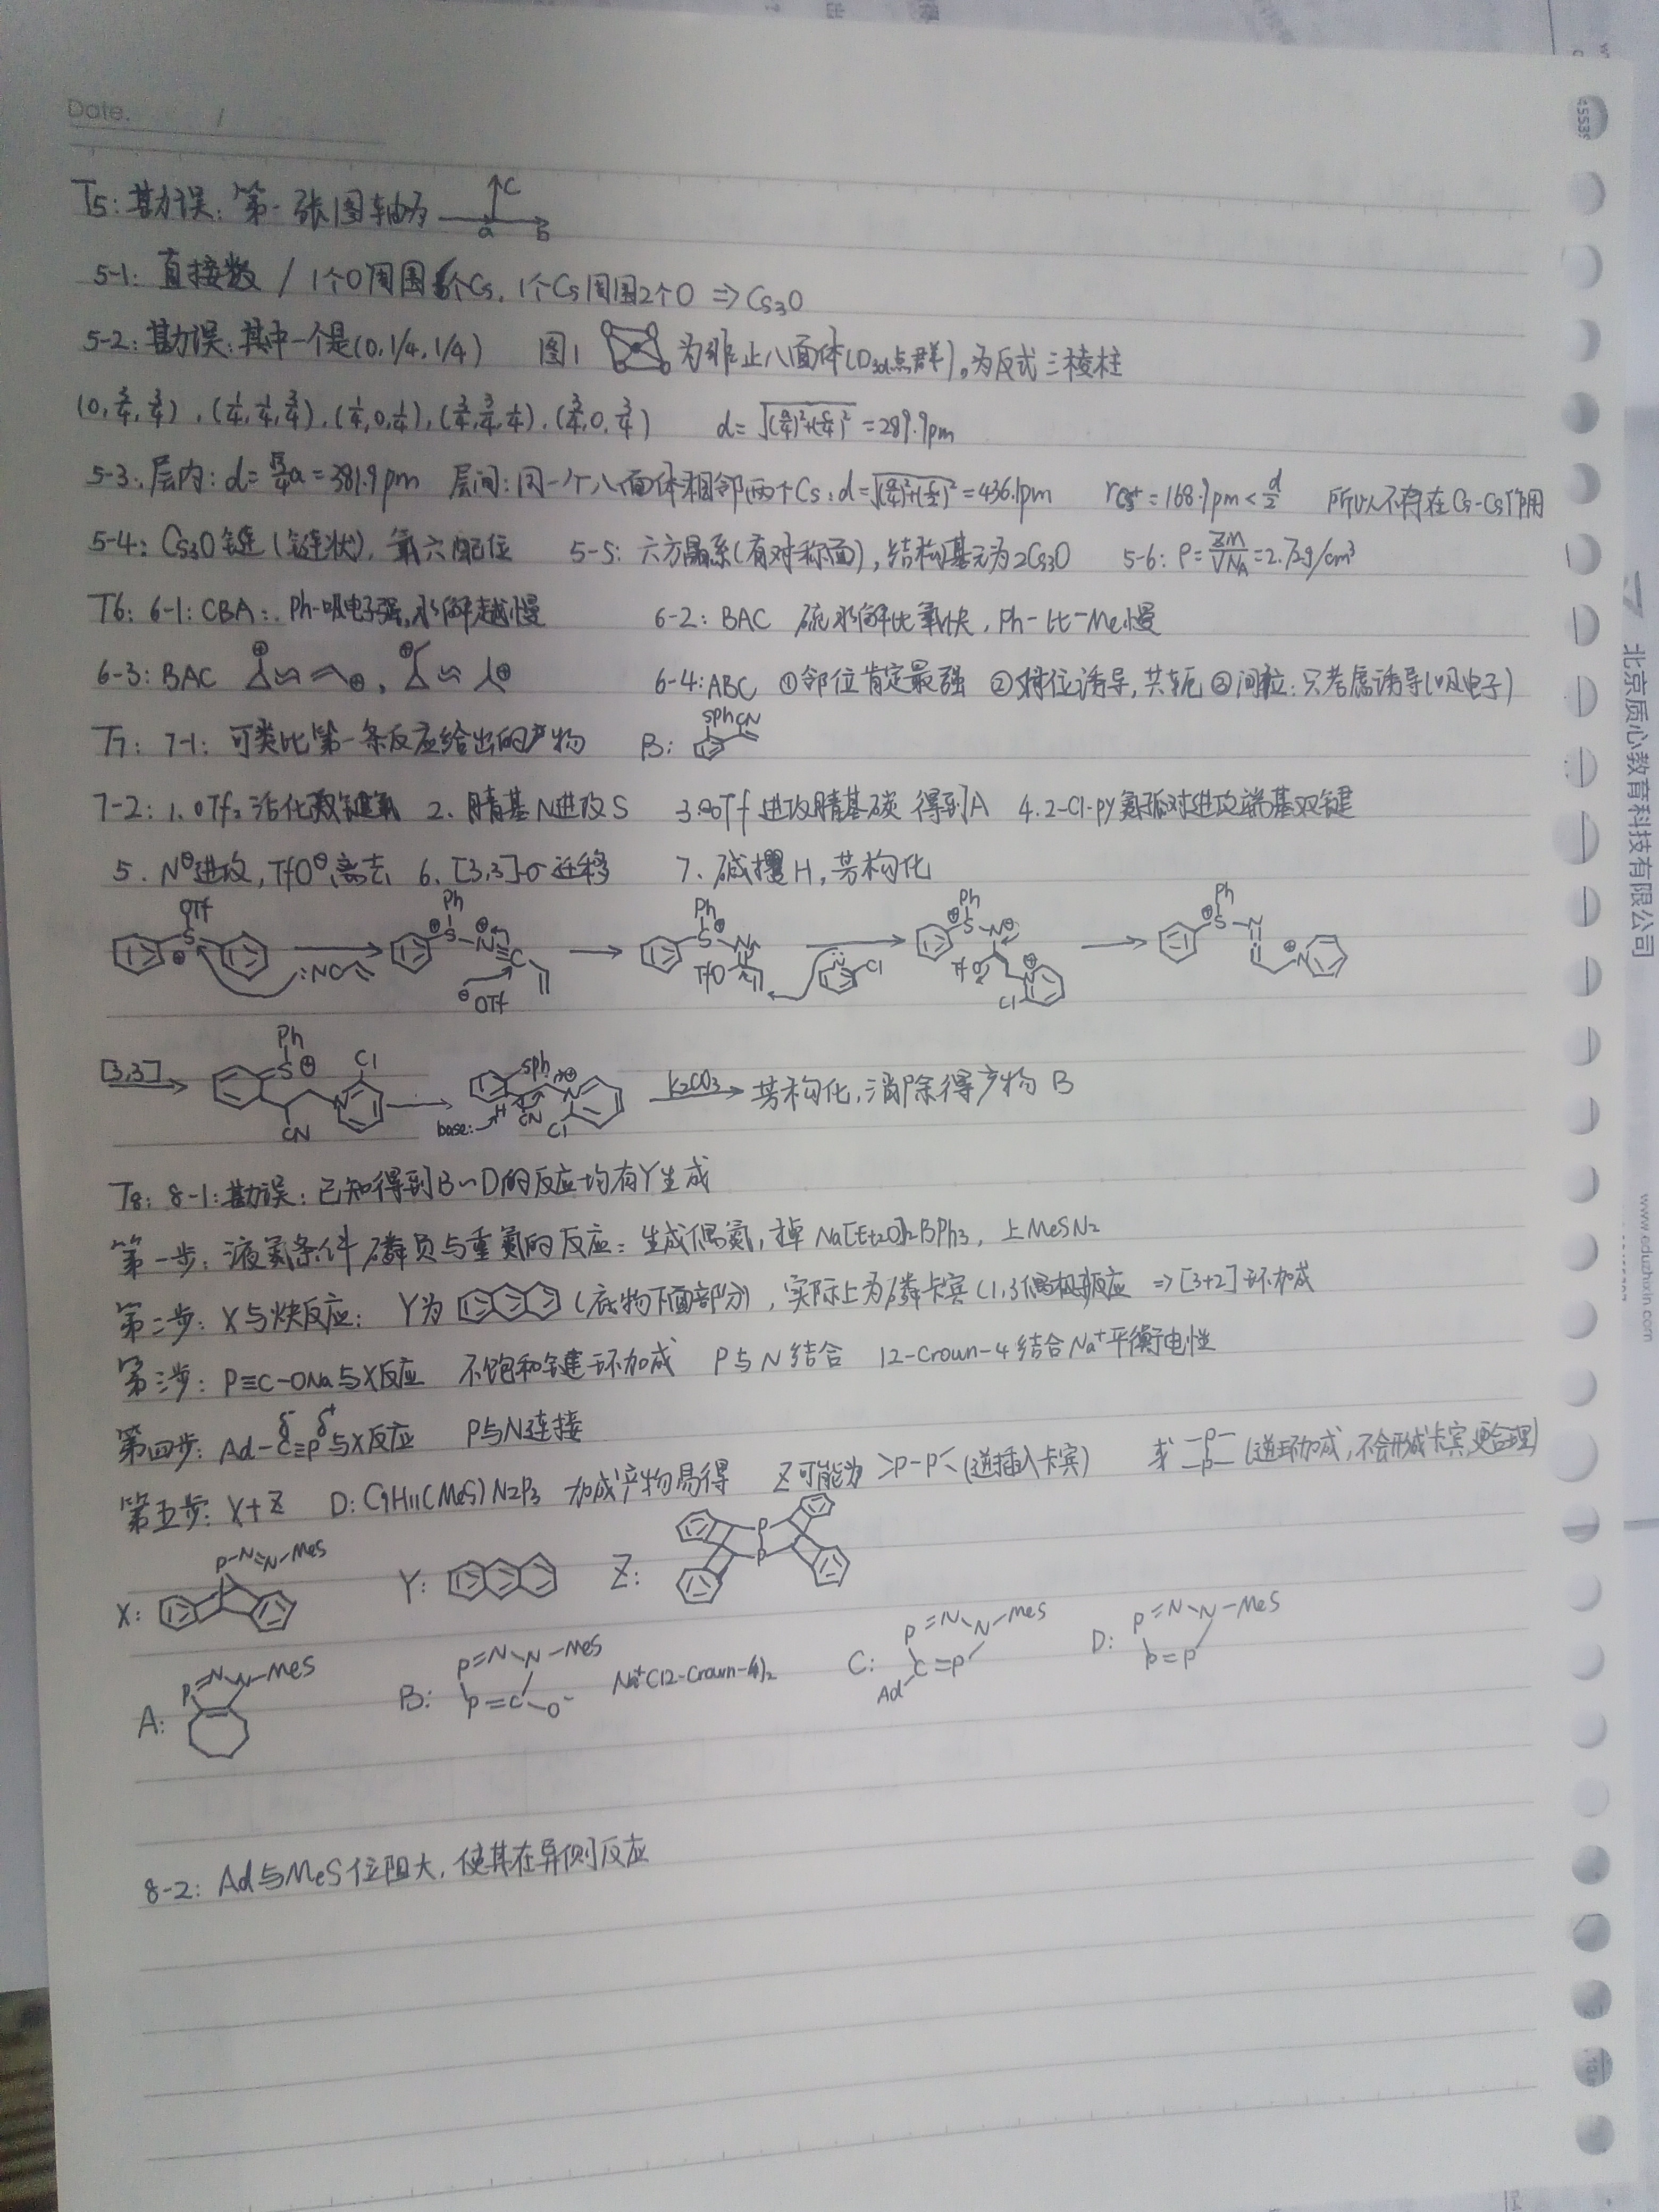 Date. /
T5: 勘误: 第一张图轴为 c a b
5-1: 直接数 / 1个O周围6个Cs, 1个Cs周围2个O ⇒ Cs3O
5-2: 勘误: 其中一个是(0,1/4,1/4) 图1 为非正八面体(D3d点群)。为反式三棱柱
(0,3/4,3/4), (1/4,1/4,3/4), (1/4,0,1/4), (3/4,3/4,1/4), (3/4,0,3/4) d=√(a/4)²+(c/4)² =289.9pm
5-3: 层内: d=√3/4a=381.9pm 层间: 同一个八面体相邻两个Cs: d=√(a/4)²+(c/2)² =436.1pm rCs+=168.9pm<d/2 所以不存在Cs-Cs作用
5-4: Cs3O链(链状), 氧六配位 5-5: 六方晶系(有对称面), 结构基元为2Cs3O 5-6: ρ=ZM/VNA=2.72g/cm³
T6: 6-1: CBA: Ph-吸电子强, 水解越慢 6-2: BAC 硫水解比氧快, Ph-比-Me慢
6-3: BAC 6-4: ABC ①邻位肯定最强 ②对位诱导, 共轭 ③间位: 只考虑诱导(吸电子)
T7: 7-1: 可类比第一条反应给出的产物 B: SPh CN
7-2: 1. OTf2活化 2. 腈基N进攻S 3. ⊖OTf 进攻腈基碳 得到A 4. 2-Cl-py氮孤对进攻端基双键
5. N⊖进攻, TfO⊖离去 6. [3,3]σ迁移 7. 碱攫H, 芳构化
OTf S ⊕ :NC Ph ⊕S-N⊕≡C ⊖OTf Ph S⊕ N TfO N Cl Ph ⊕S-N⊖ TfO N⊕ Cl Ph ⊕S-N ⊕N
[3,3] Ph S⊕ CN N Cl SPh N⊕ base: H CN Cl K2CO3 芳构化, 消除得产物 B
T8: 8-1: 勘误: 已知得到B~D的反应均有Y生成
第一步: 液氮条件 磷负与重氮的反应: 生成偶氮, 掉 Na[Et2O]2BPh3, 上MeSN2
第二步: X与炔反应: Y为 (底物下面部分), 实际上为磷卡宾(1,3偶极反应 ⇒[3+2]环加成
第三步: P≡C-ONa与X反应 不饱和键环加成 P与N结合 12-Crown-4结合Na+平衡电性
第四步: Ad-C≡P与X反应 δ- δ+ P与N连接
第五步: X+Z D: C9H11(MeS)N2P3 加成产物易得 Z可能为 >P-P< (逆插入卡宾) 或 -P- -P- (逆环加成, 不会形成卡宾, 更合理)
X: P-N=N-MeS Y: Z: P P
A: P=N N-MeS B: P=N N-MeS P=C O- Na+(12-Crown-4)2 C: P=N N-MeS C=P Ad D: P=N N-MeS P=P
8-2: Ad与MeS位阻大, 使其在异侧反应
北京质心教育科技有限公司
www.eduzhixin.com